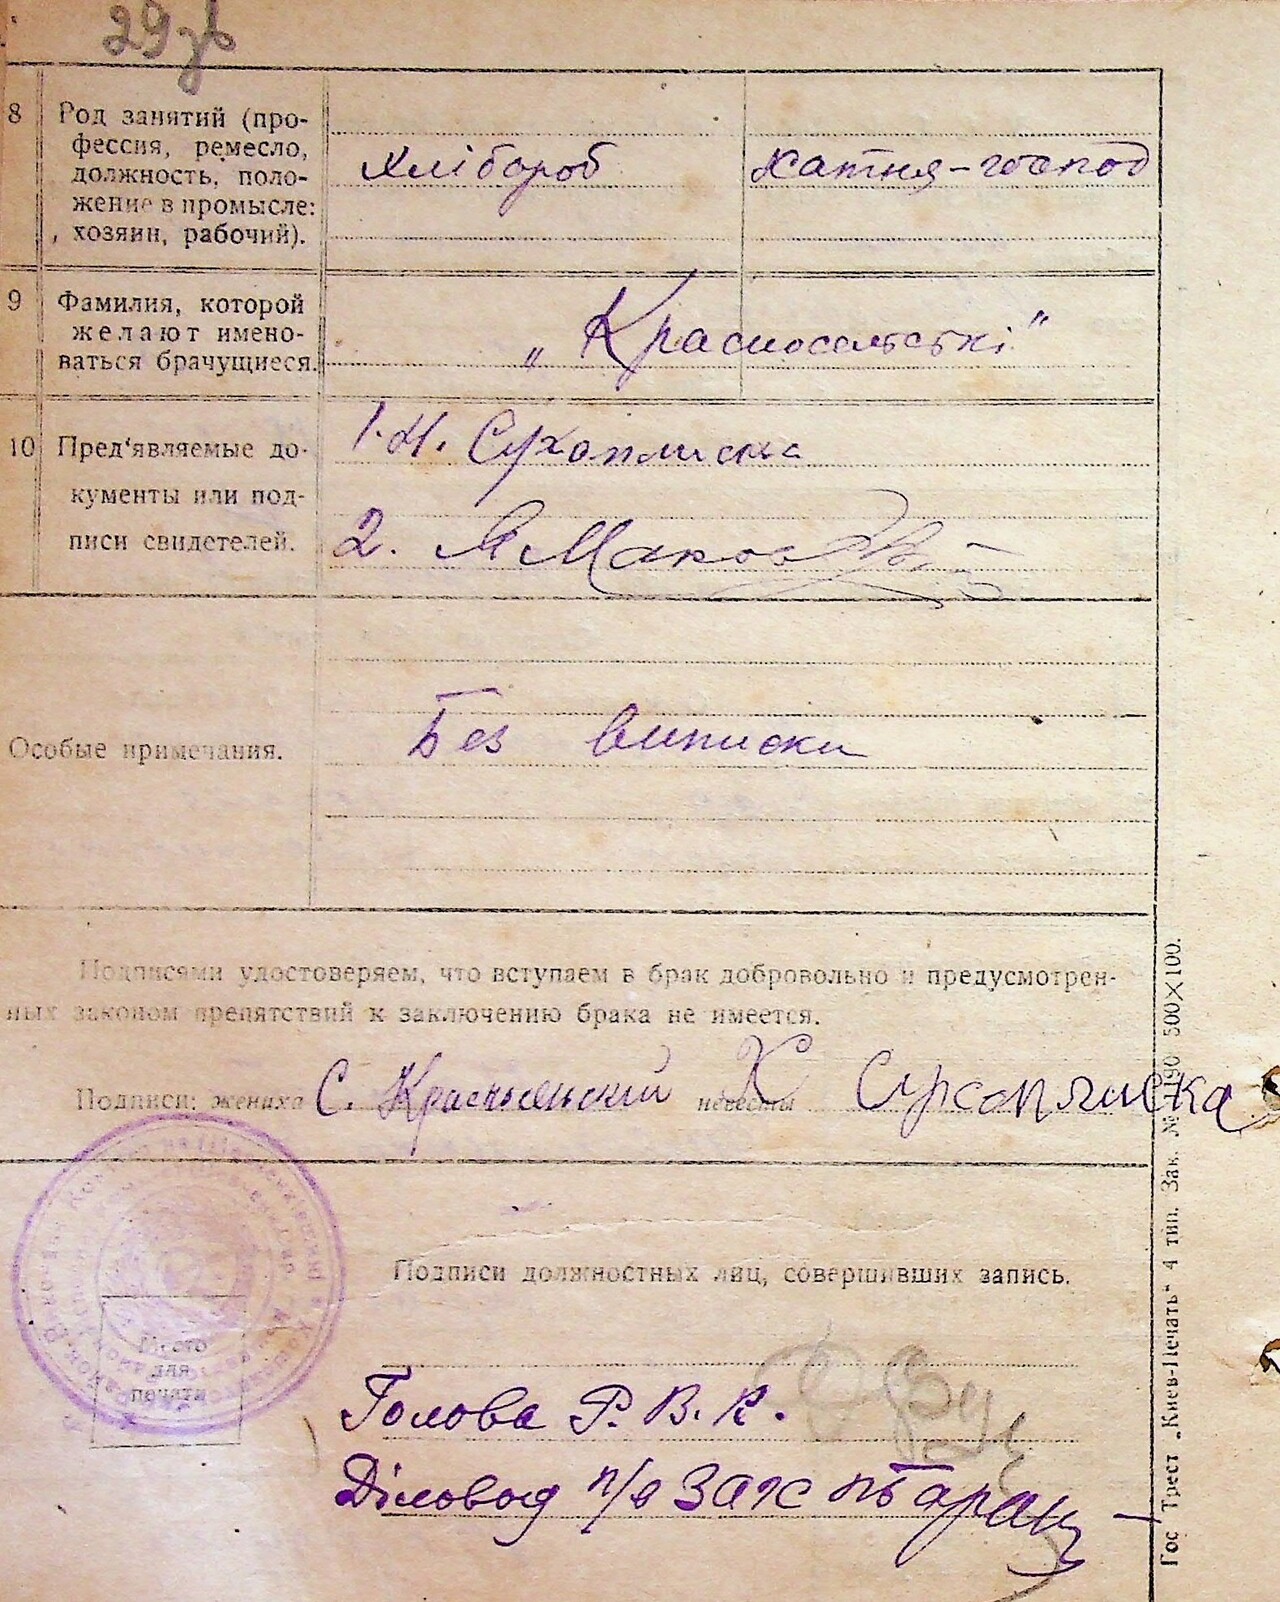 29 зв
8 Род занятий (про-
фессия, ремесло,
должность, поло-
жение в промысле:
хозяин, рабочий).
хлібороб
хатня-господ
9 Фамилия, которой
желают имено-
ваться брачущиеся.
„Красносельські"
10 Пред'являемые до-
кументы или под-
писи свидетелей.
1. Н. Сухоплиска
2.
Особые примечания.
Без виписки
Подписями удостоверяем, что вступаем в брак добровольно и предусмотрен-
ных законом препятствий к заключению брака не имеется.
Подписи: жениха С. невесты Х Сухоплиска
Подписи должностных лиц, совершивших запись.
Место
для
печати
Голова Р. В. К.
Діловод п/в ЗАГС
Гос Трест „Киев-Печать" 4 тип. Зак. № 500×100.